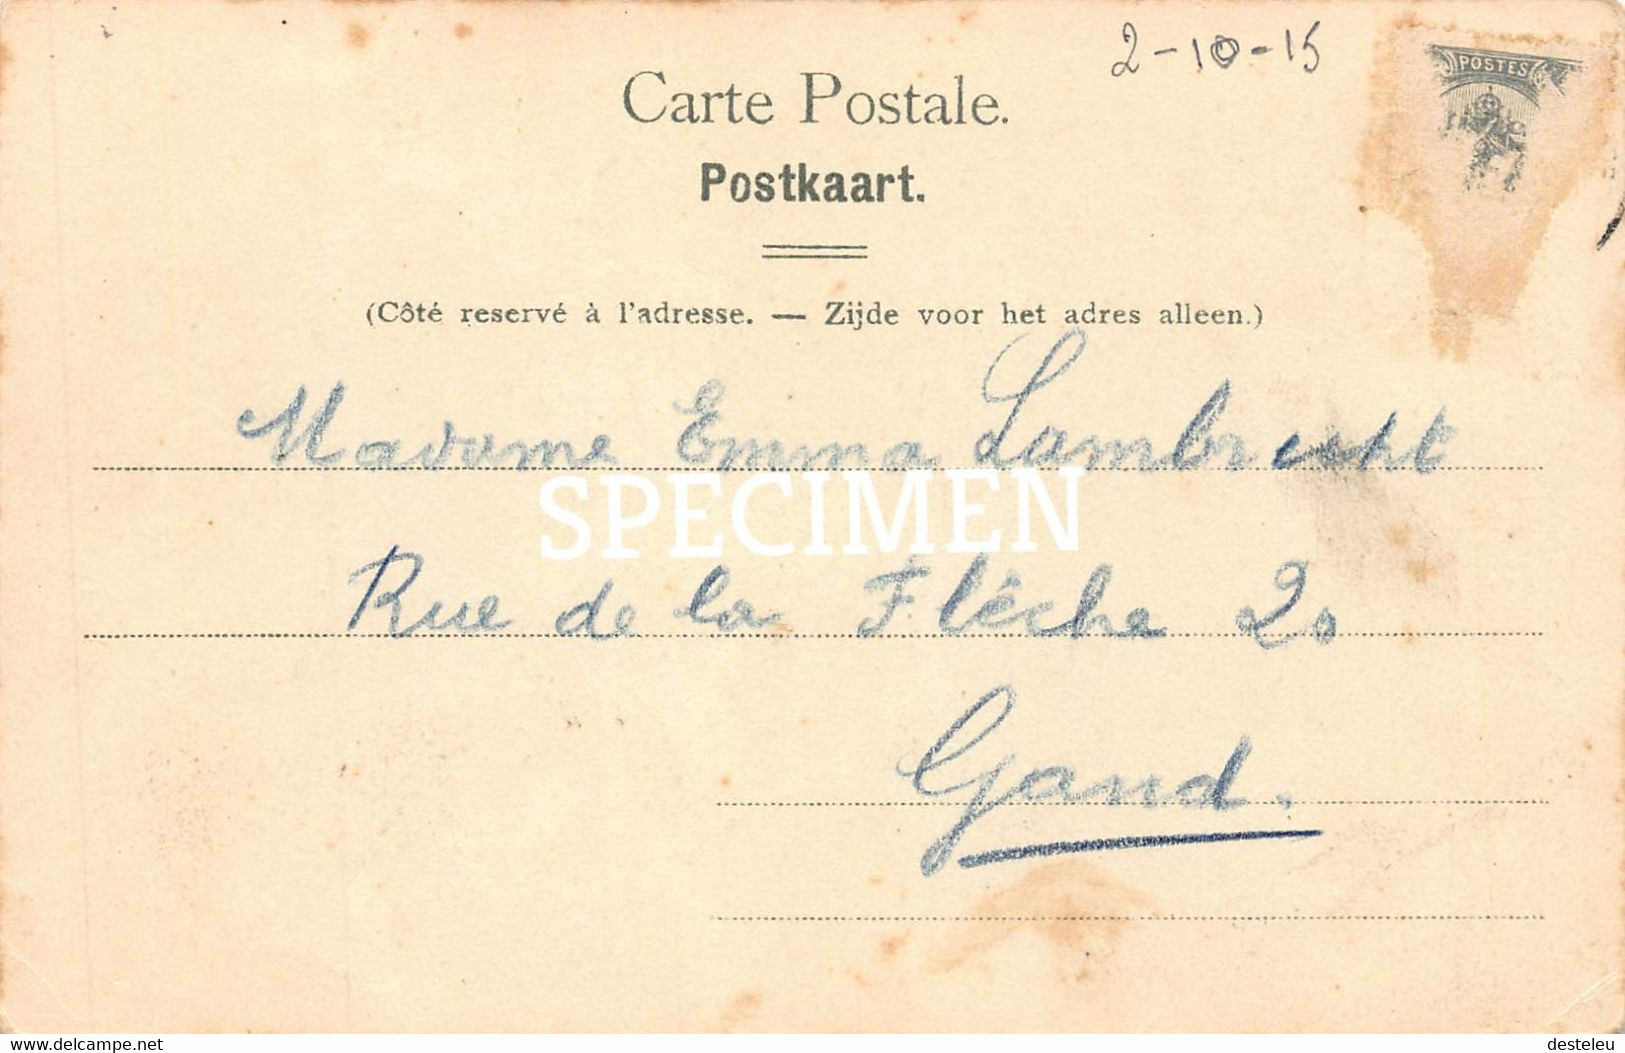 2-10-15
POSTES
Carte Postale.
Postkaart.
(Côté reservé à l'adresse. — Zijde voor het adres alleen.)
Madame Emma Lambrecht
SPECIMEN
Rue de la Flèche 20
Gand.
www.delcampe.net
desteleu